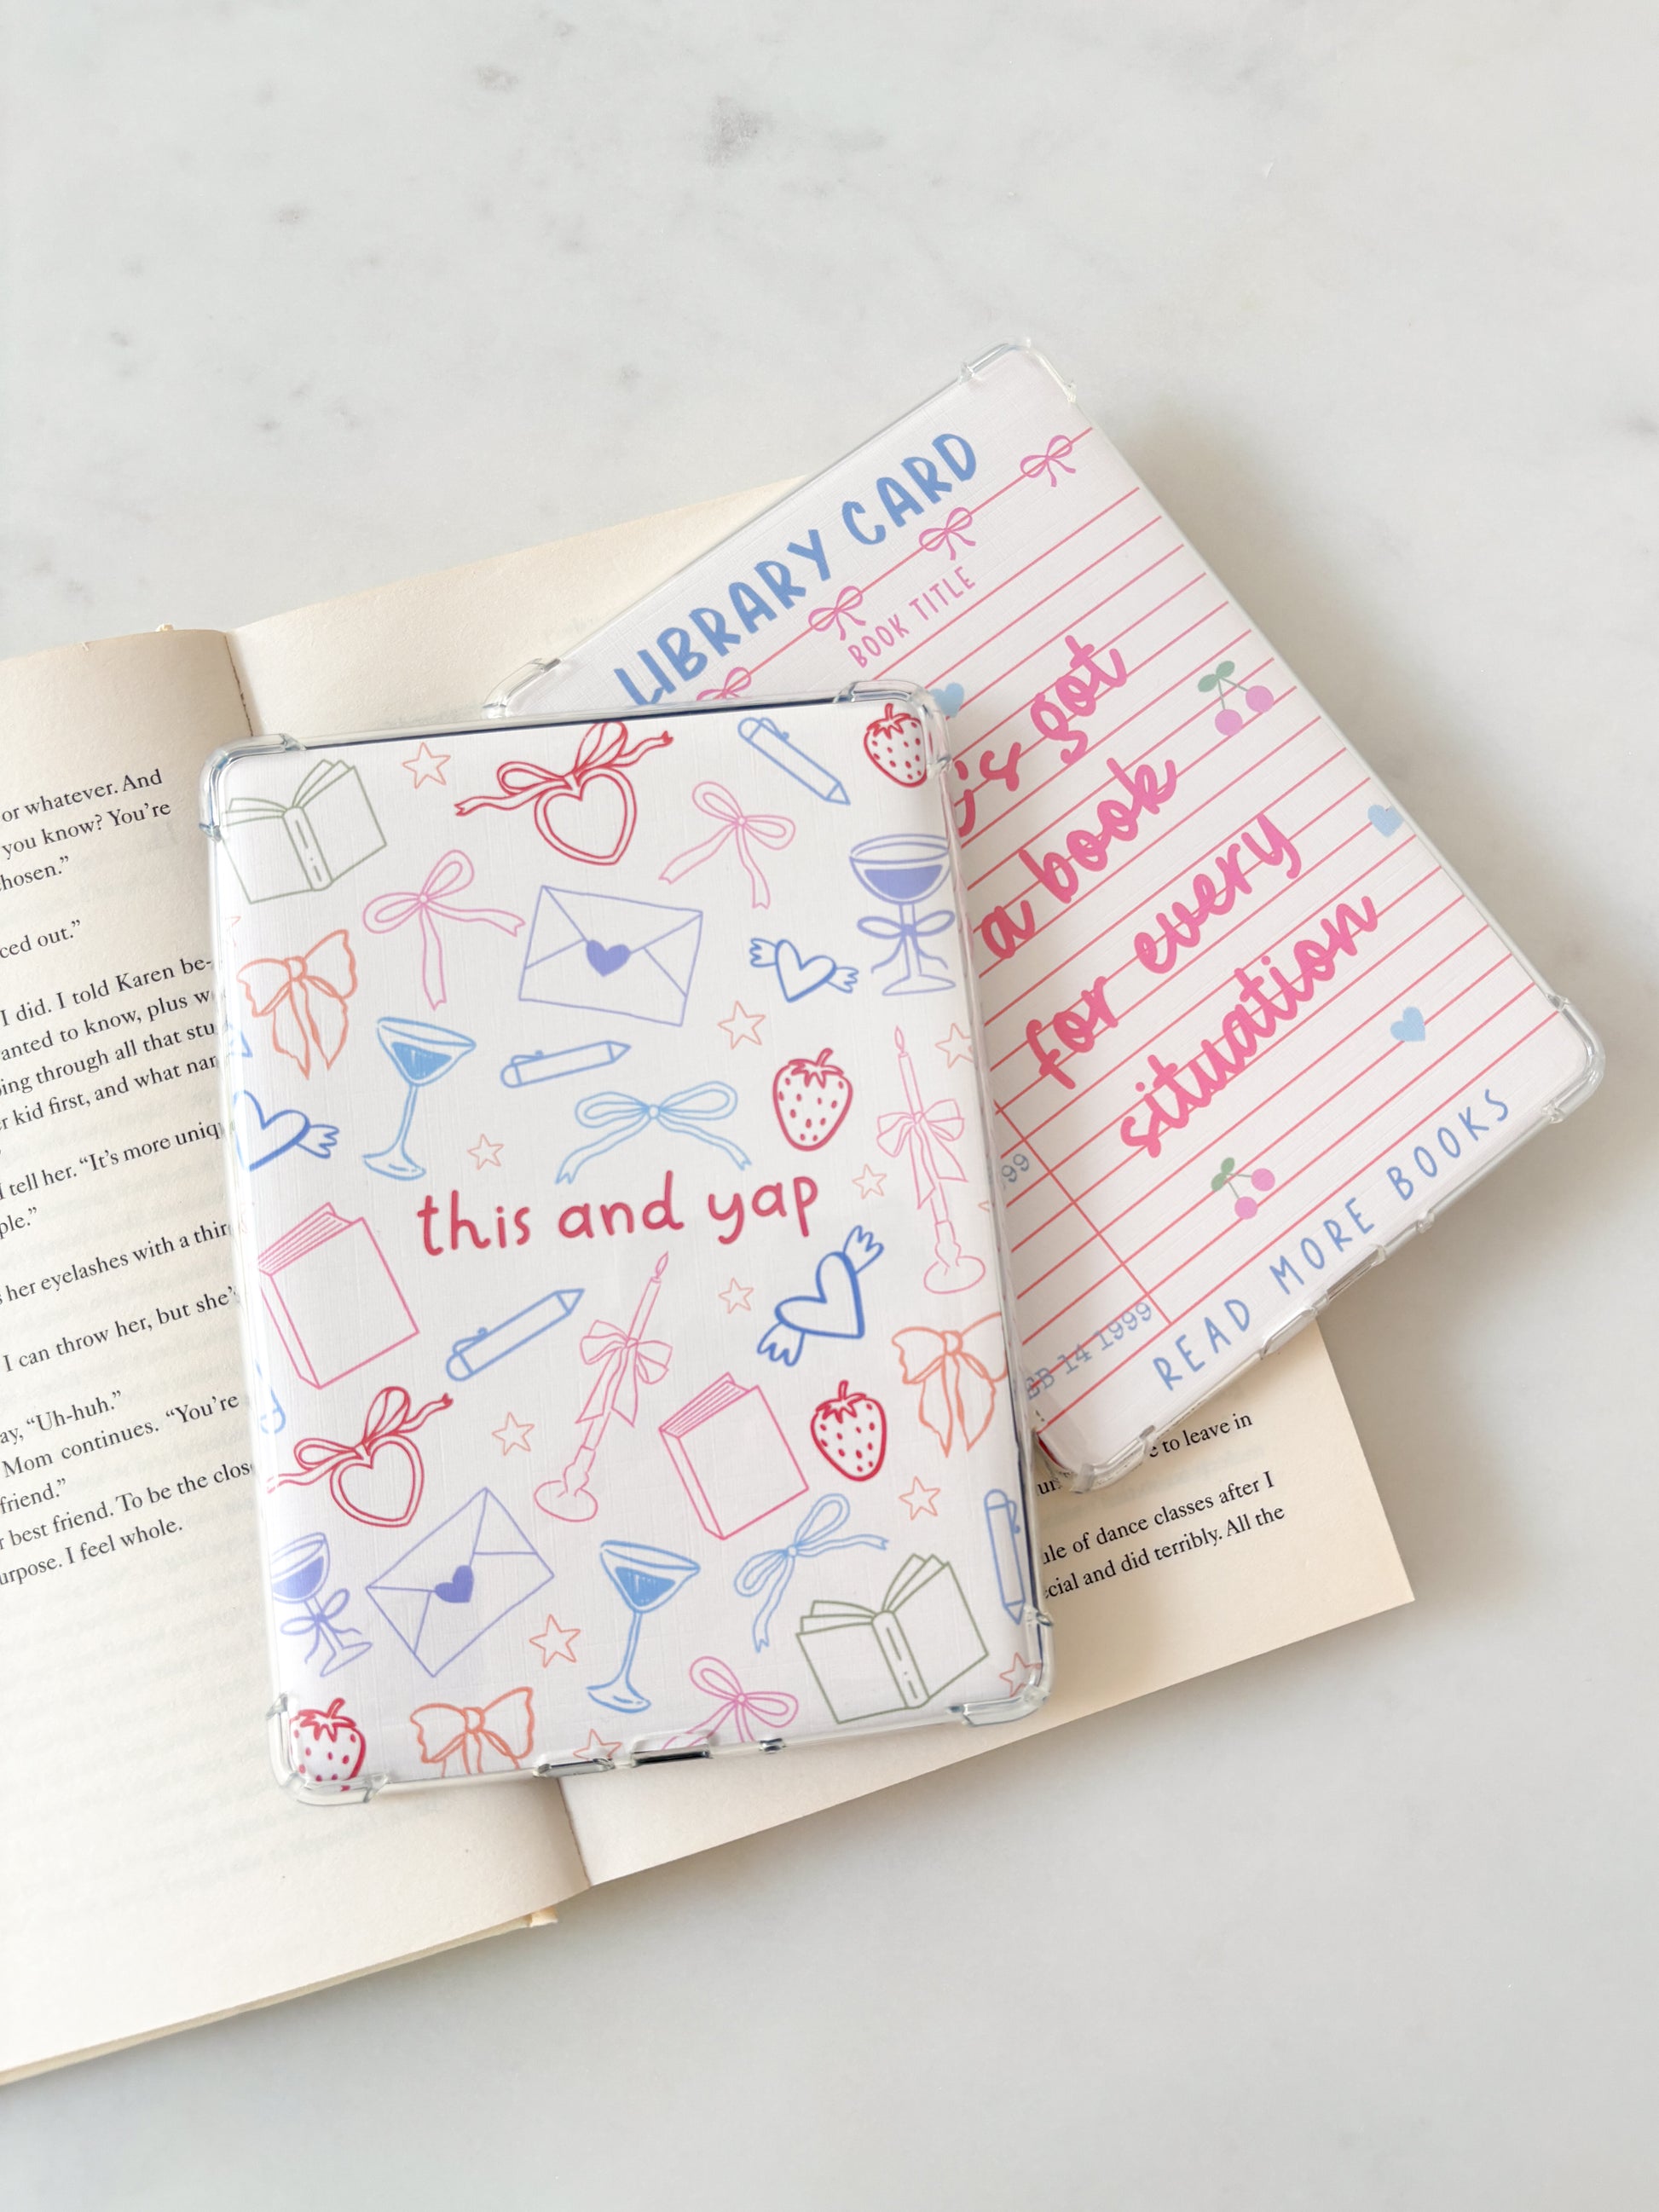 LIBRARY CARD
BOOK TITLE
's got
a book
for every
situation
99
14 1999
READ MORE BOOKS
this and yap
or whatever. And
you know? You're
hosen.”
ced out.”
I did. I told Karen be-
anted to know, plus
ing through all that
r kid first, and what
I tell her. “It's more
ple.”
her eyelashes with a
I can throw her, but she's
ay, “Uh-huh.”
Mom continues. “You're
friend.”
r best friend. To be the
urpose. I feel whole.
e to leave in
ule of dance classes after I
ecial and did terribly. All the